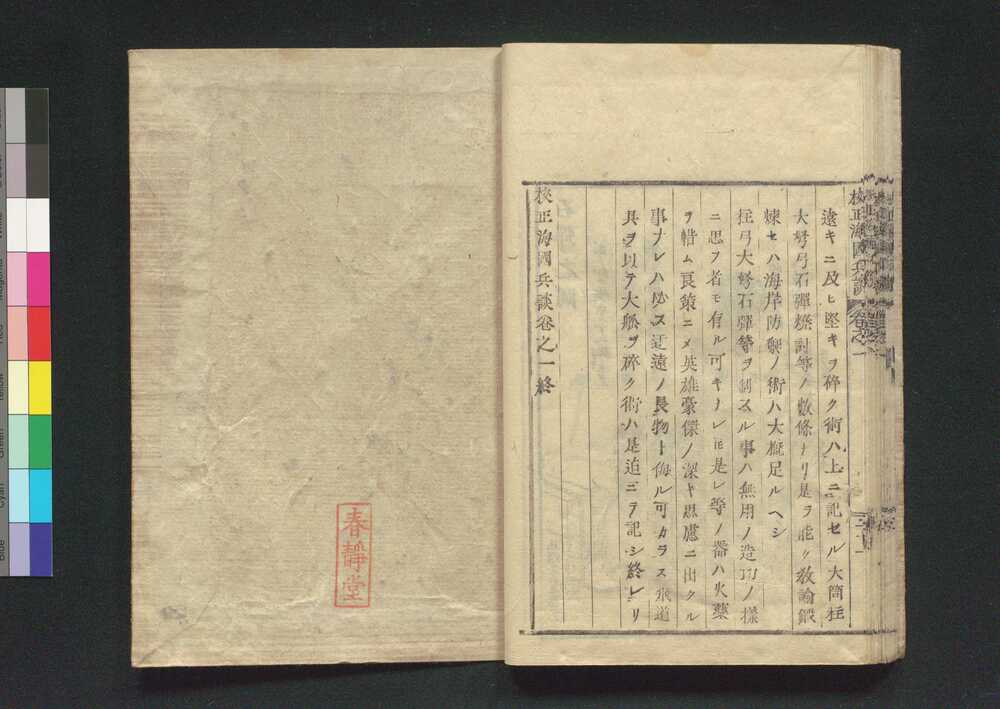 遠キニ及ヒ堅キヲ碎ク術ハ上ニ記セル大筒狂
大弩弓石彈等ノ數條ナリ是ヲ能ク教諭鍛
煉セハ海岸防禦ノ術ハ大概足ルヘシ
狂弓大弩石彈等ヲ制スル事ハ無用ノ造作ノ樣
ニ思フ者モ有ル可キナレ𪜈是レ等ノ器ハ火藥
ヲ惜ム良策ニメ英雄豪傑ノ深キ思慮ニ出タル
事ナレハ必ス迂遠ノ長物ト侮ル可カラス水道
具ヲ以テ大舩ヲ碎ク術ハ是迄ニテ記シ終レリ
校正海國兵談卷之一終
校正海國兵談
卷之一
春靜堂